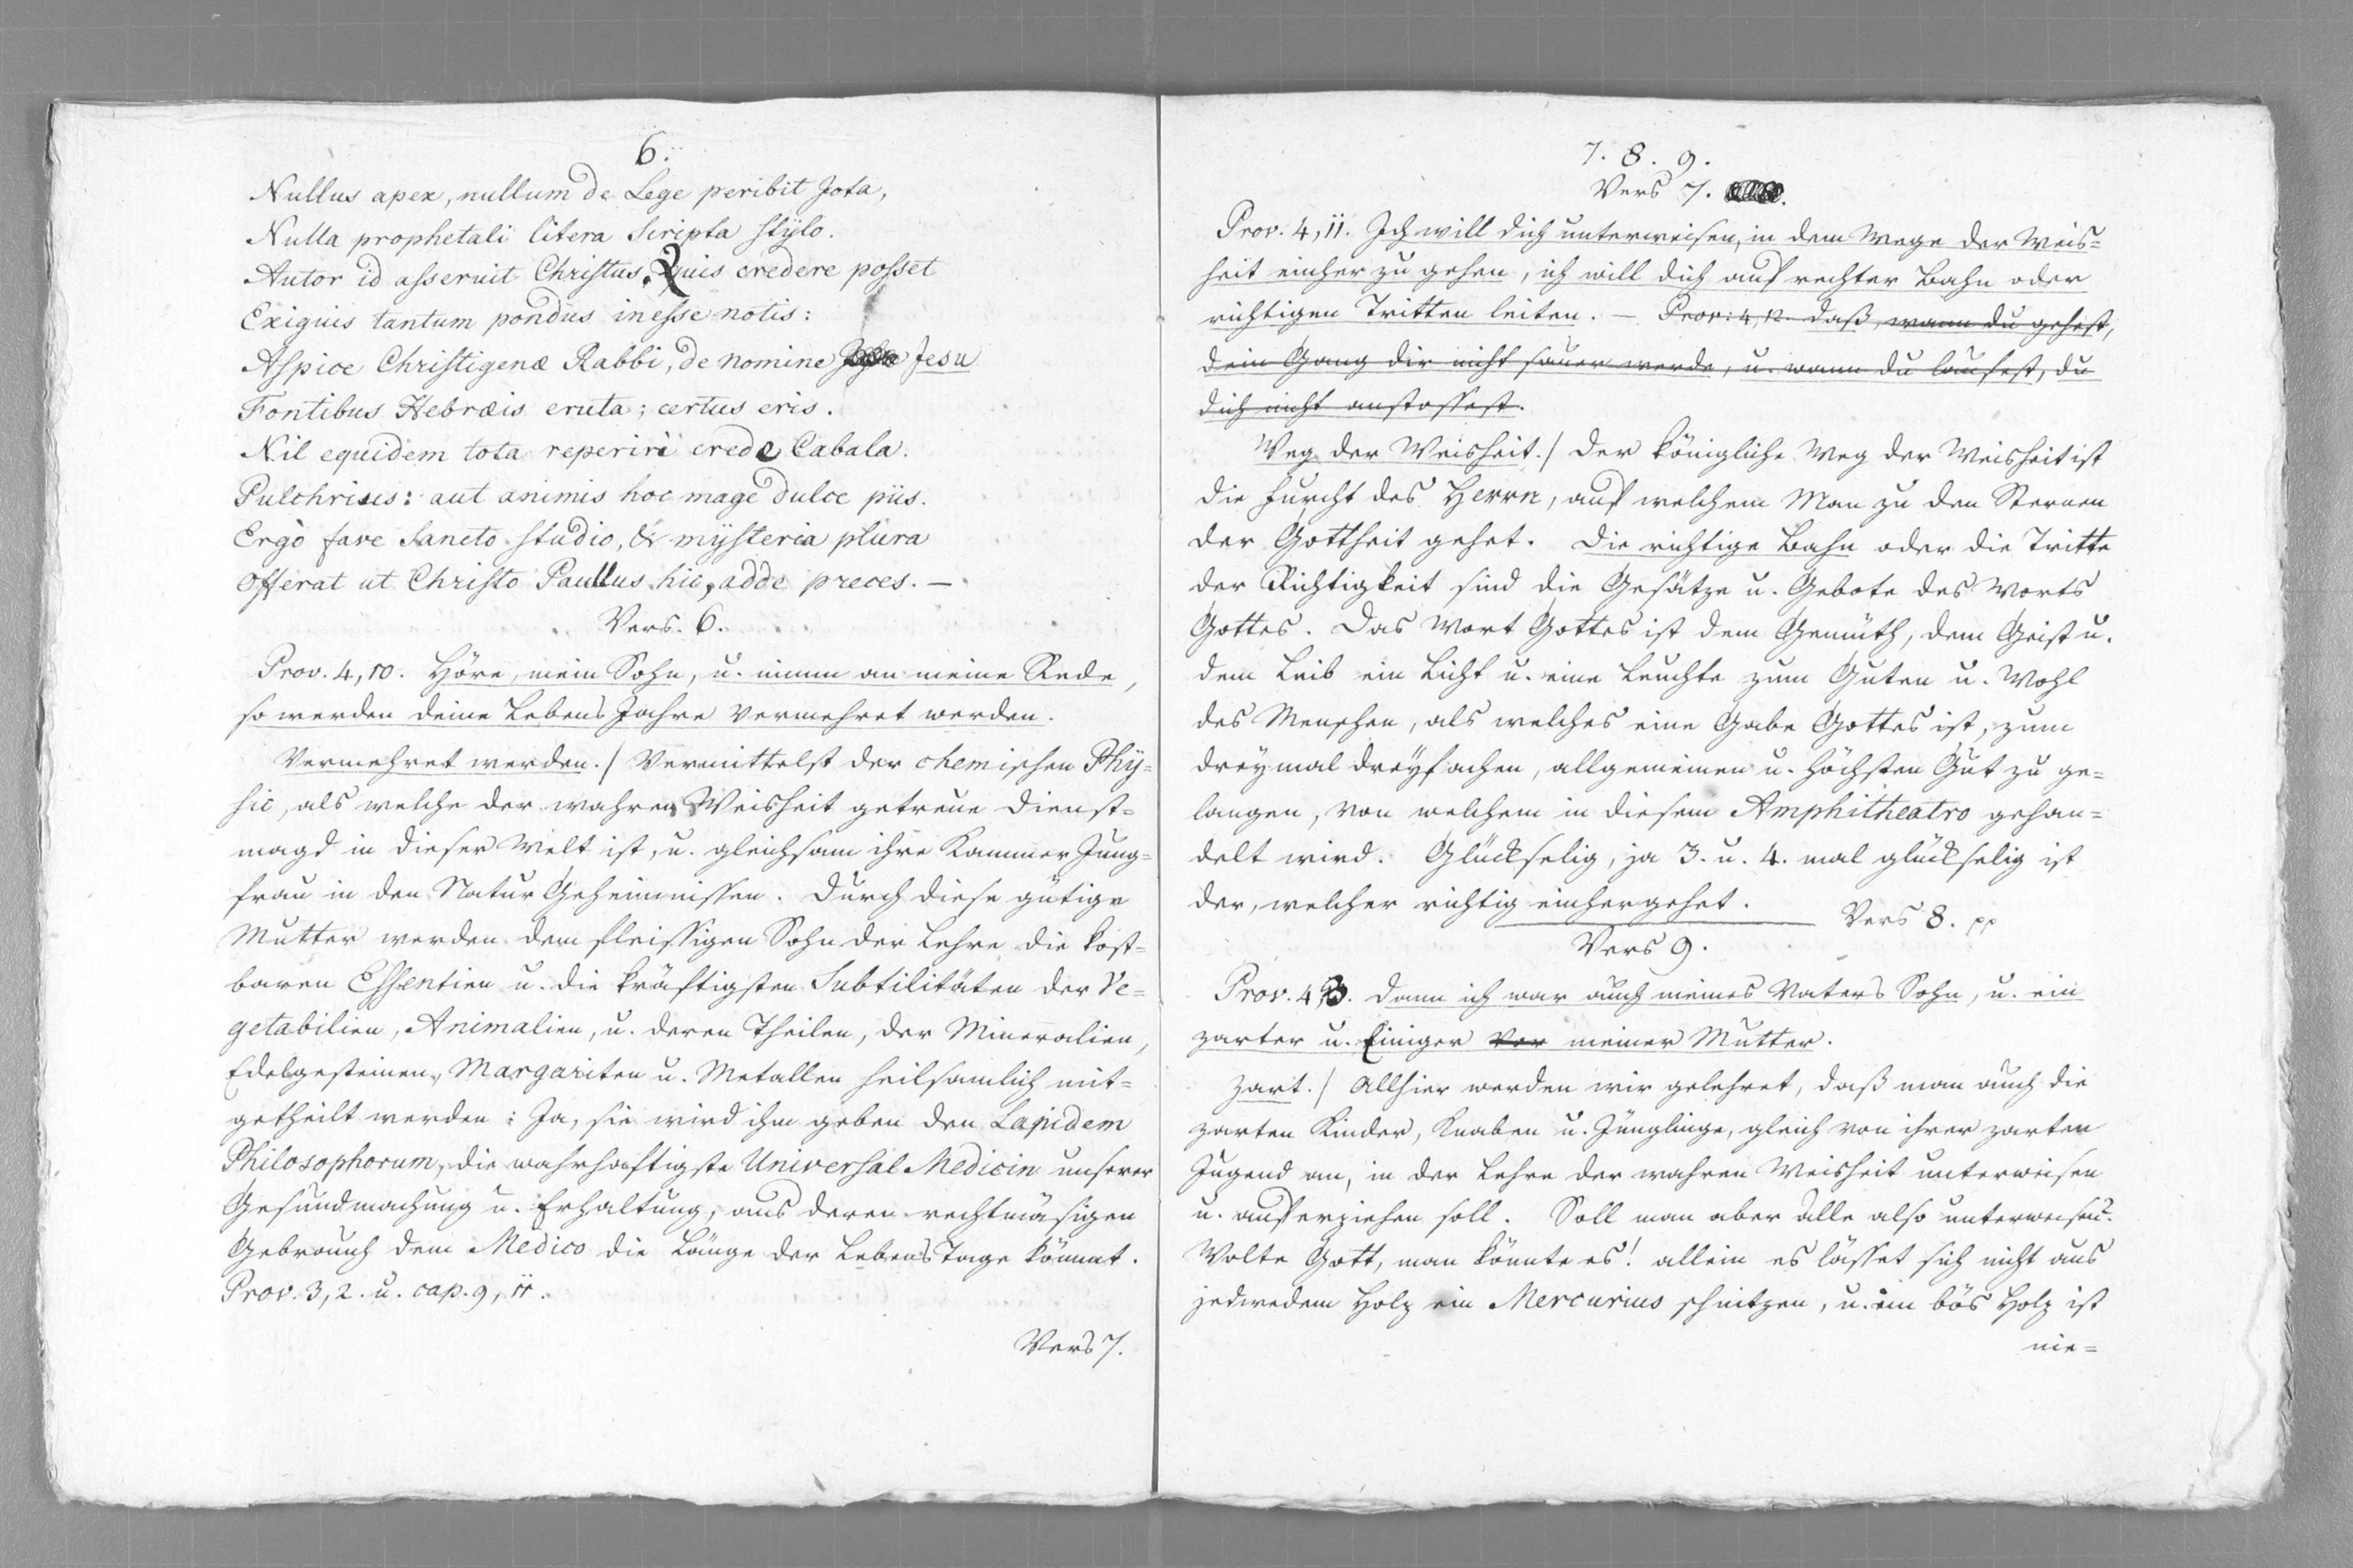 6.
Nullus apex, nullum de Lege peribit Jota,
Nulla prophetali litera scripta stÿlo.
Autor id asseruit Christus. Quis credere posset
Exiguis tantum pondus inesse notis:
Aspice Christigenæ Rabbi, de nomine Jesu
Fontibus Hebræis eruta; certus eris.
Nil equidem tota reperiri crede Cabala.
Pulchrius: aut animis hoc mage dulce piis.
Ergò fave Sancto studio, & mÿsteria plura
Offerat ut Christo Paullus hic, adde preces. —
Vers. 6.
Prov. 4, 10. Höre, mein Sohn, u. nimm an meine Rede,
so werden deine Lebens Jahre vermehret werden.
Vermehret werden./ Vermittelst der chemischen Phÿ=
sic, als welche der wahren Weisheit getreue Dienst=
magd in dieser Welt ist, u. gleichsam ihre Kammer Jung=
frau in den Natur Geheimnissen. Durch diese gütige
Mutter werden dem fleissigen Sohn der Lehre die kost=
baren Essentien u. die kräftigsten Subtilitäten der Ve=
getabilien, Animalien, u. deren Theilen, der Mineralien,
Edelgesteinen, Margariten u. Metallen heilsamlich mit=
getheilt werden: Ja, sie wird ihm geben den Lapidem
Philosophorum, die wahrhaftigste Universal Medicin unserer
Gesundmachung u. Erhaltung, aus deren rechtmäsigen
Gebrauch dem Medico die Länge der Lebens Tage kömmt.
Prov. 3, 2. u. cap. 9, 11.
Vers 7.
7. 8. 9.
Vers 7.
Prov. 4, 11. Ich will dich unterweisen, in dem Wege der Weis=
heit einher zu gehen, ich will dich auf rechter Bahn oder
richtigen Tritten leiten. — Prov: 4, 12. daß, wann du gehest,
dein Gang dir nicht sauer werde, u. wann du laufest, du
dich nicht anstossest.
Weg der Weisheit./ Der königliche Weg der Weisheit ist
die Furcht des Herrn, auf welchem Man zu den Sternen
der Gottheit gehet. Die richtige Bahn oder die Tritte
der Richtigkeit sind die Gesätze u. Gebote des Worts
Gottes. Das Wort Gottes ist dem Gemüth, dem Geist u.
dem Leib ein Licht u. eine Leuchte zum Guten u. Wohl
des Menschen, als welches eine Gabe Gottes ist, zum
dreÿmal dreÿfachen, allgemeinen u. höchsten Gut zu ge=
langen, von welchem in diesem Amphitheatro gehan=
delt wird. Glückselig, ja 3. u. 4. mal glückselig ist
der, welcher richtig einhergehet.
Vers 8. pp
Vers 9.
Prov. 4, 3. Dann ich war auch meines Vaters Sohn, u. ein
zarter u. Einiger vor meiner Mutter.
Zart./ Allhier werden wir gelehret, daß man auch die
zarten Kinder, Knaben u. Jünglinge, gleich von ihrer zarten
Jugend an, in der Lehre der wahren Weisheit unterweisen
u. auferziehen soll. Soll man aber alle also unterweisen?
Wolte Gott, man könnte es! allein es lässet sich nicht aus
jedwedem Holz ein Mercurius schnitzen, u. ein bös Holz ist
nie=